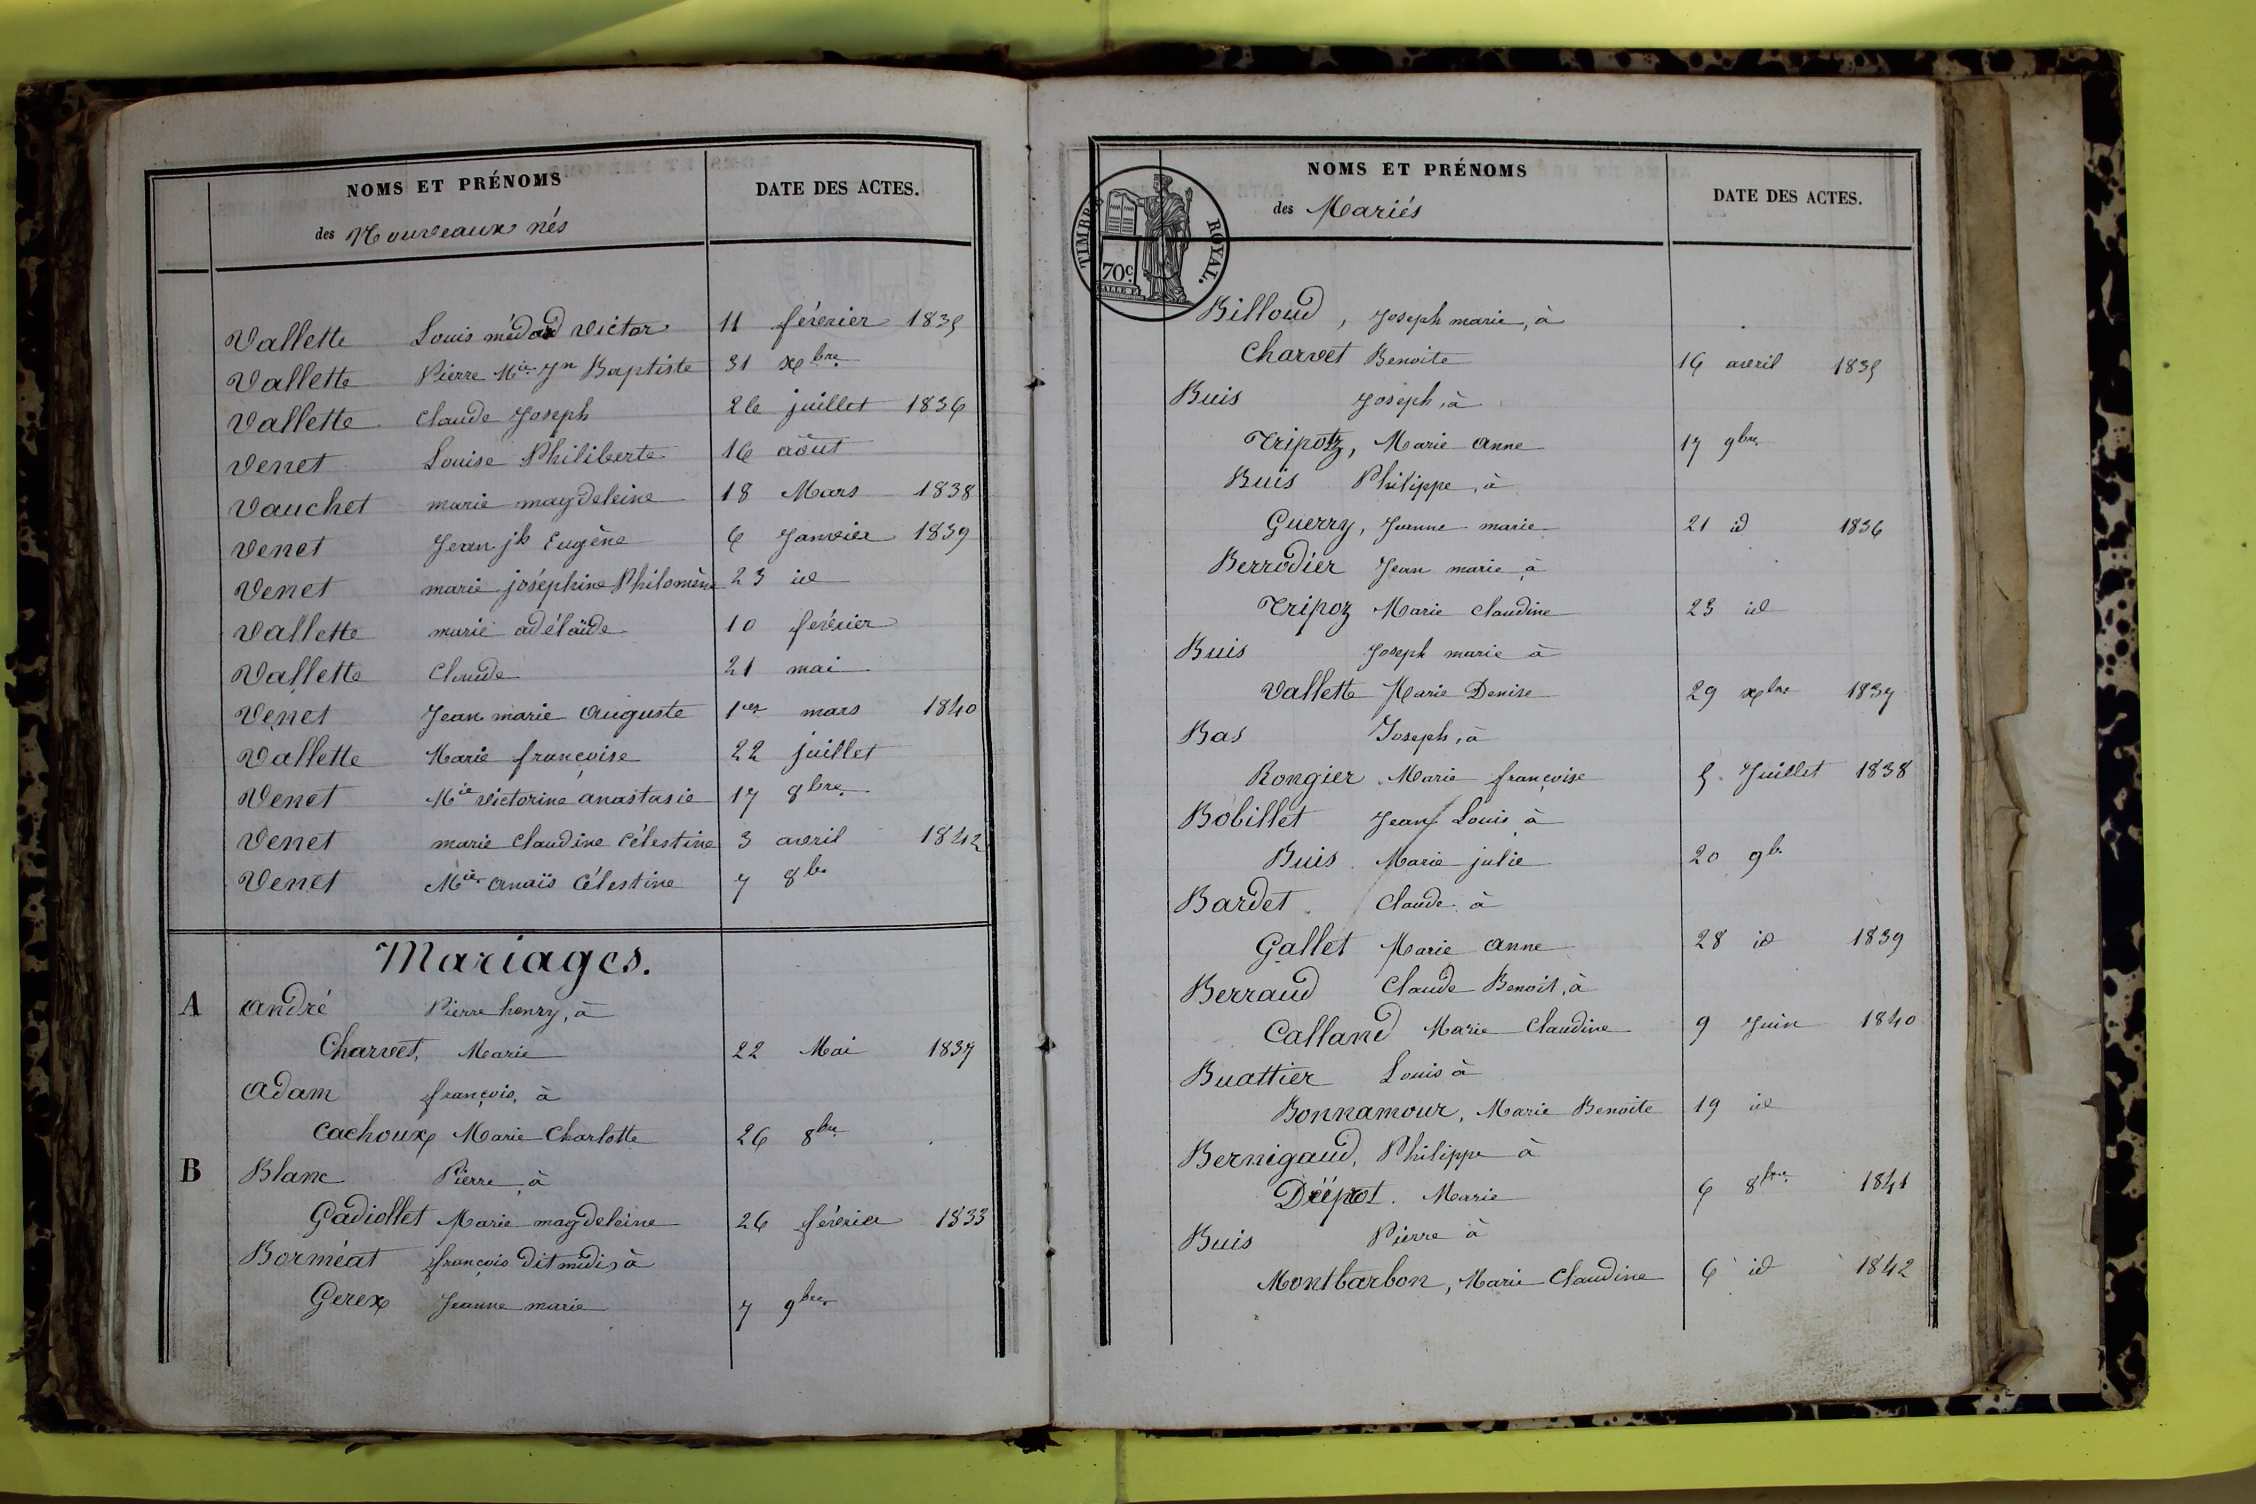 NOMS ET PRÉNOMS
DATE DES ACTES.
des Nouveaux nés
Vallette Louis médard victor 11 février 1835
Vallette Pierre Mie Jn Baptiste 31 xbre
Vallette claude Joseph 26 juillet 1836
Venet Louise Philiberte 16 août
Vauchet marie magdeleine 18 Mars 1838
Venet Jean jh Eugène 6 Janvier 1839
Venet marie joséphine Philomène 23 id
Vallette marie adélaïde 10 février
Vallette Claude 21 mai
Venet Jean marie Auguste 1er mars 1840
Vallette Marie françoise 22 juillet
Venet Mie victorine anastasie 17 8bre
Venet marie Claudine Célestine 3 avril 1842
Venet Mie anaïs Célestine 7 8bre
Mariages.
A André Pierre henry, à
Charvet, Marie 22 Mai 1837
Adam françois, à
Cachoux Marie Charlotte 26 8bre
B Blanc Pierre, à
Gadiollet Marie magdeleine 26 février 1833
Borméat françois dit midi, à
Gerex Jeanne marie 7 9bre
NOMS ET PRÉNOMS
DATE DES ACTES.
des Mariés
TIMBRE ROYAL.
70c.
Billoud, Joseph marie, à
Charvet Benoite 16 avril 1835
Buis Joseph, à
Tripotz, Marie Anne 17 9bre
Buis Philippe, à
Guerry, Jeanne marie 21 id 1836
Berrodier Jean marie à
Tripoz Marie Claudine 23 id
Buis Joseph marie à
Vallette Marie Denise 29 xbre 1837
Bas Joseph, à
Rongier Marie françoise 5 Juillet 1838
Bobillet Jean Louis à
Buis Marie julie 20 9b.
Bardet Claude à
Gallet Marie Anne 28 id 1839
Berraud Claude Benoit, à
Calland Marie Claudine 9 Juin 1840
Buattier Louis à
Bonnamour, Marie Benoite 19 id
Bernigaud, Philippe à
Marie 6 8bre 1841
Buis Pierre à
Montbarbon, Marie Claudine 6 id 1842